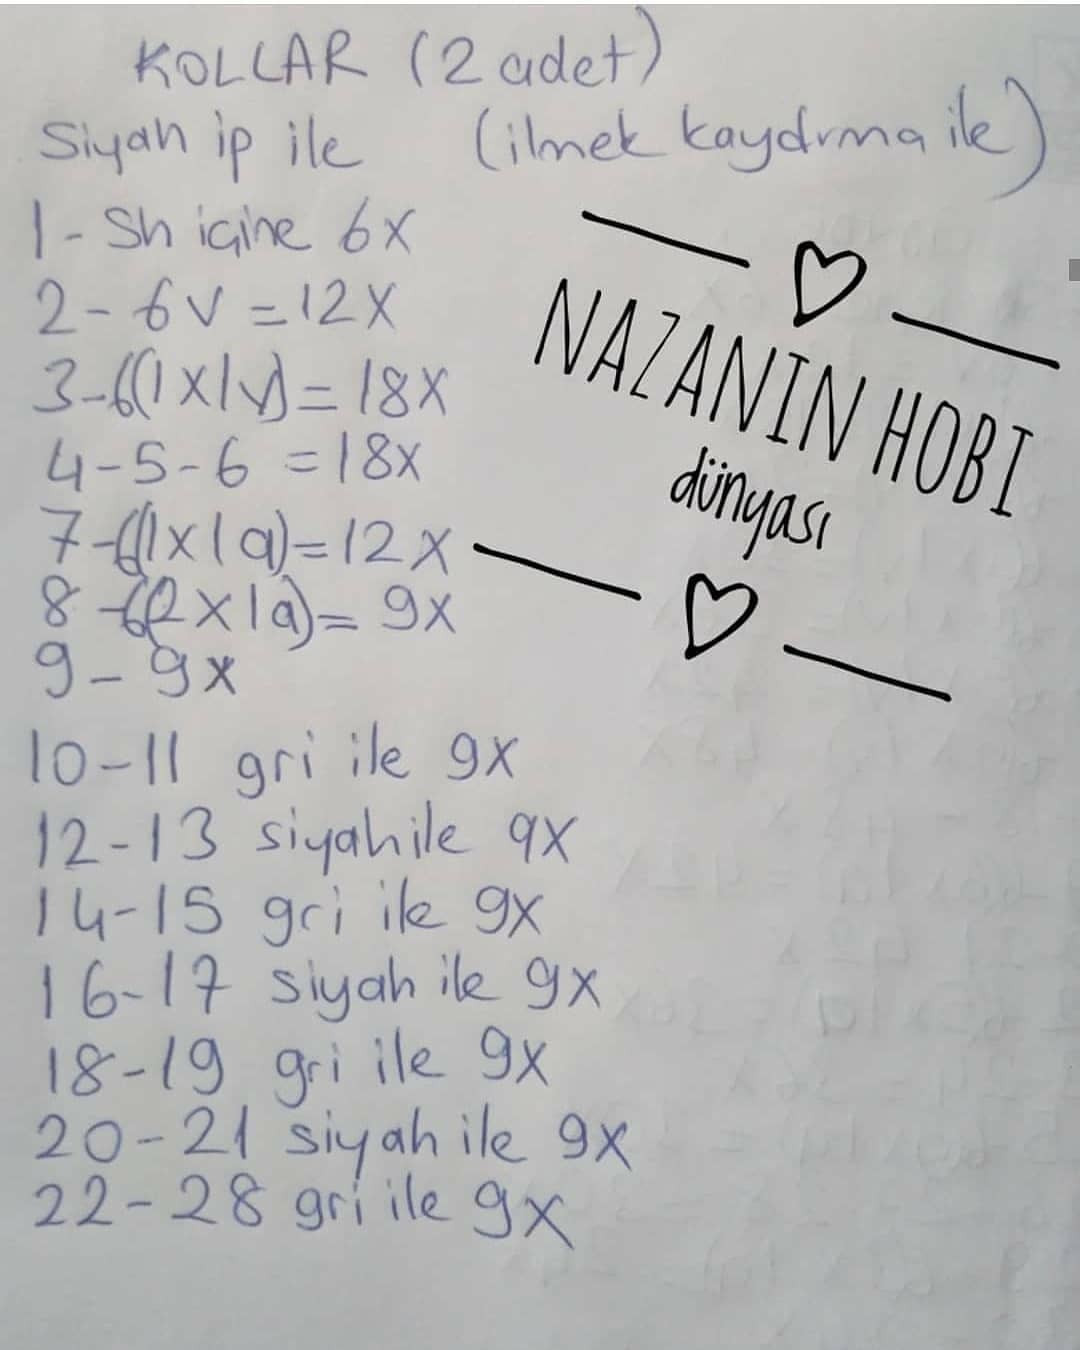 KOLLAR (2 adet)
Siyah ip ile (ilmek kaydırma ile)
1- Sh içine 6X
2- 6V = 12X
3-6(1X1V) = 18X
4-5-6 = 18X
7-6(1X1a) = 12X
8-6(2X1a) = 9X
9- 9X
10-11 gri ile 9X
12-13 siyah ile 9X
14-15 gri ile 9X
16-17 siyah ile 9X
18-19 gri ile 9X
20-21 siyah ile 9X
22-28 gri ile 9X
NAZANIN HOBI
dünyası